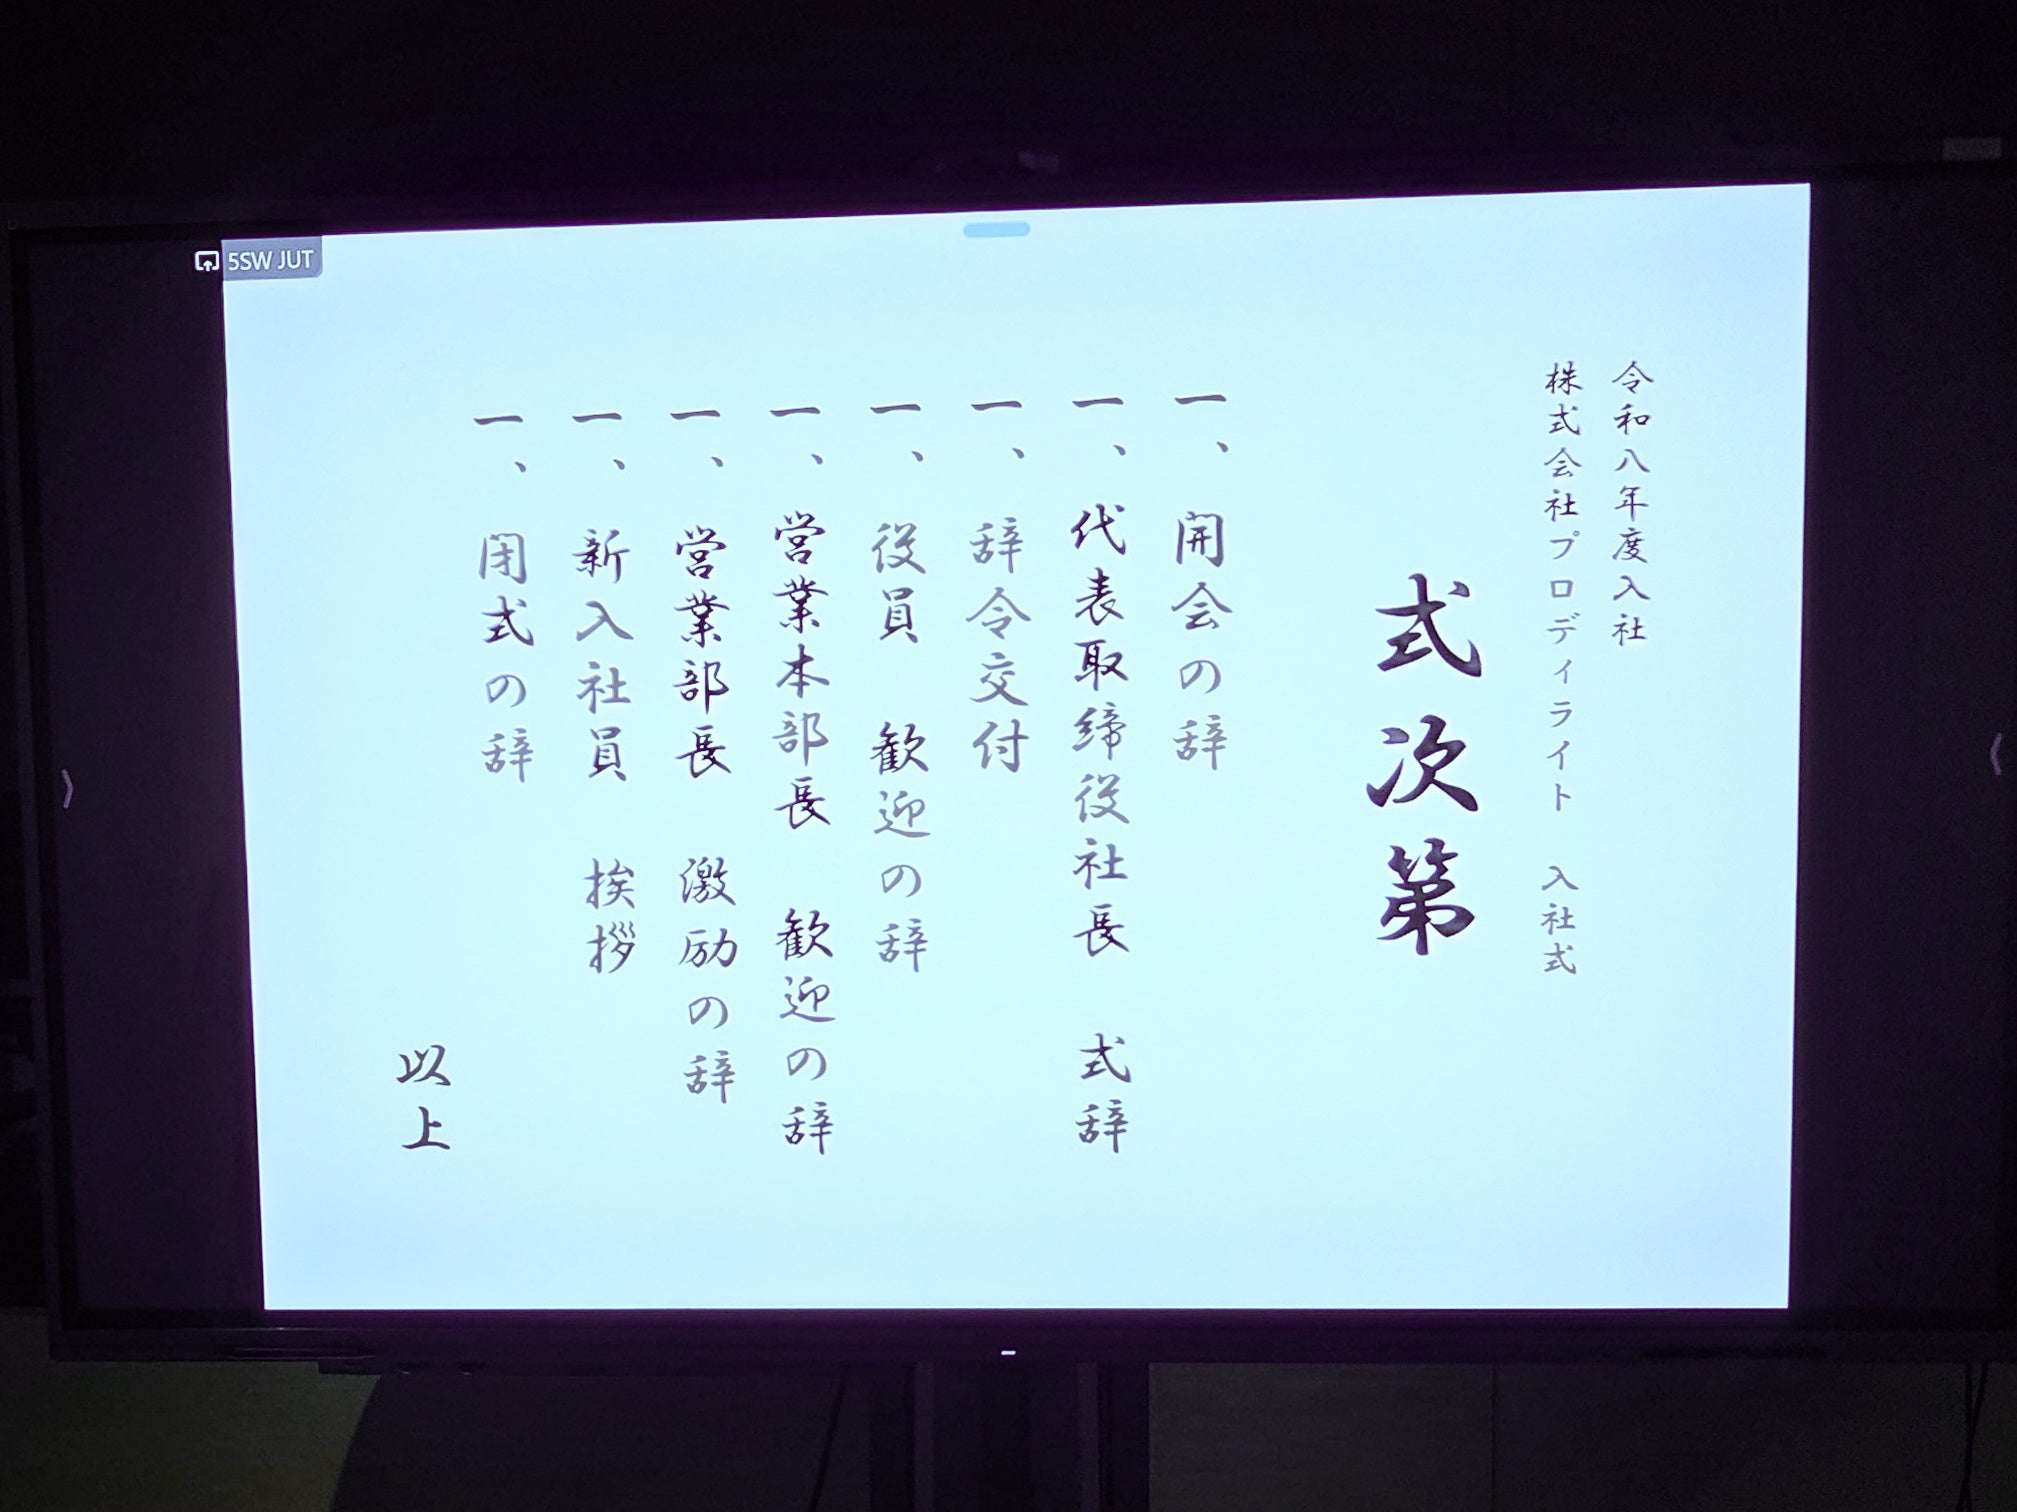 5SW JUT
令和八年度入社
株式会社プロディライト　入社式
式次第
一、開会の辞
一、代表取締役社長　式辞
一、辞令交付
一、役員　歓迎の辞
一、営業本部長　歓迎の辞
一、営業部長　激励の辞
一、新入社員　挨拶
一、閉式の辞
以上